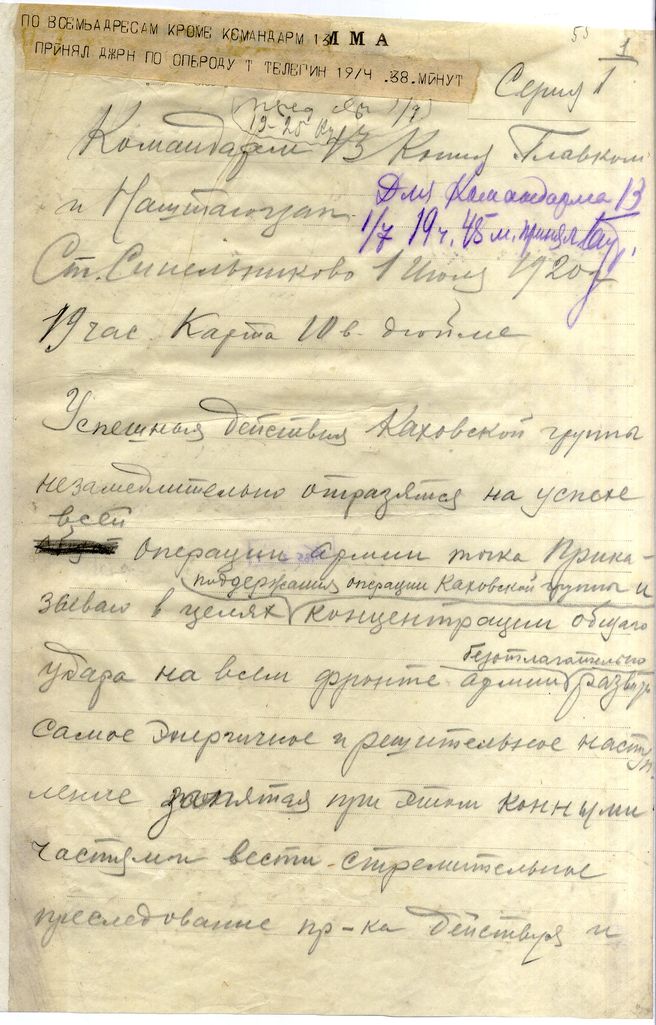 ПО ВСЕМЬАДРЕСАМ КРОМЕ КОМАНДАРМ 13 ММА
ПРИНЯЛ ДЖРН ПО ОПЕРОДУ Т ТЕЛЕГИН 19/Ч .38.МИНУТ
1
Серия 1
1/7
Командарм 13 Копия Главком
и Наштаюгзап
Для Командарма 13
1/7 19 ч. 45 м. принял
Ст. Синельниково 1 Июля 1920 г
19 час. Карта 10 в. дюйме
Успешныя действия Каховской группы
незамедлительно отразятся на успехе
всей
операции армии точка Прика-
поддержания операции Каховской группы и
зываю в целях концентрации общаго
удара на всем фронте армии развить
безотлагательно
самое энергичное и решительное насту
п
ление запятая при этом конными
частями вести стремительное
преследование пр-ка действуя и